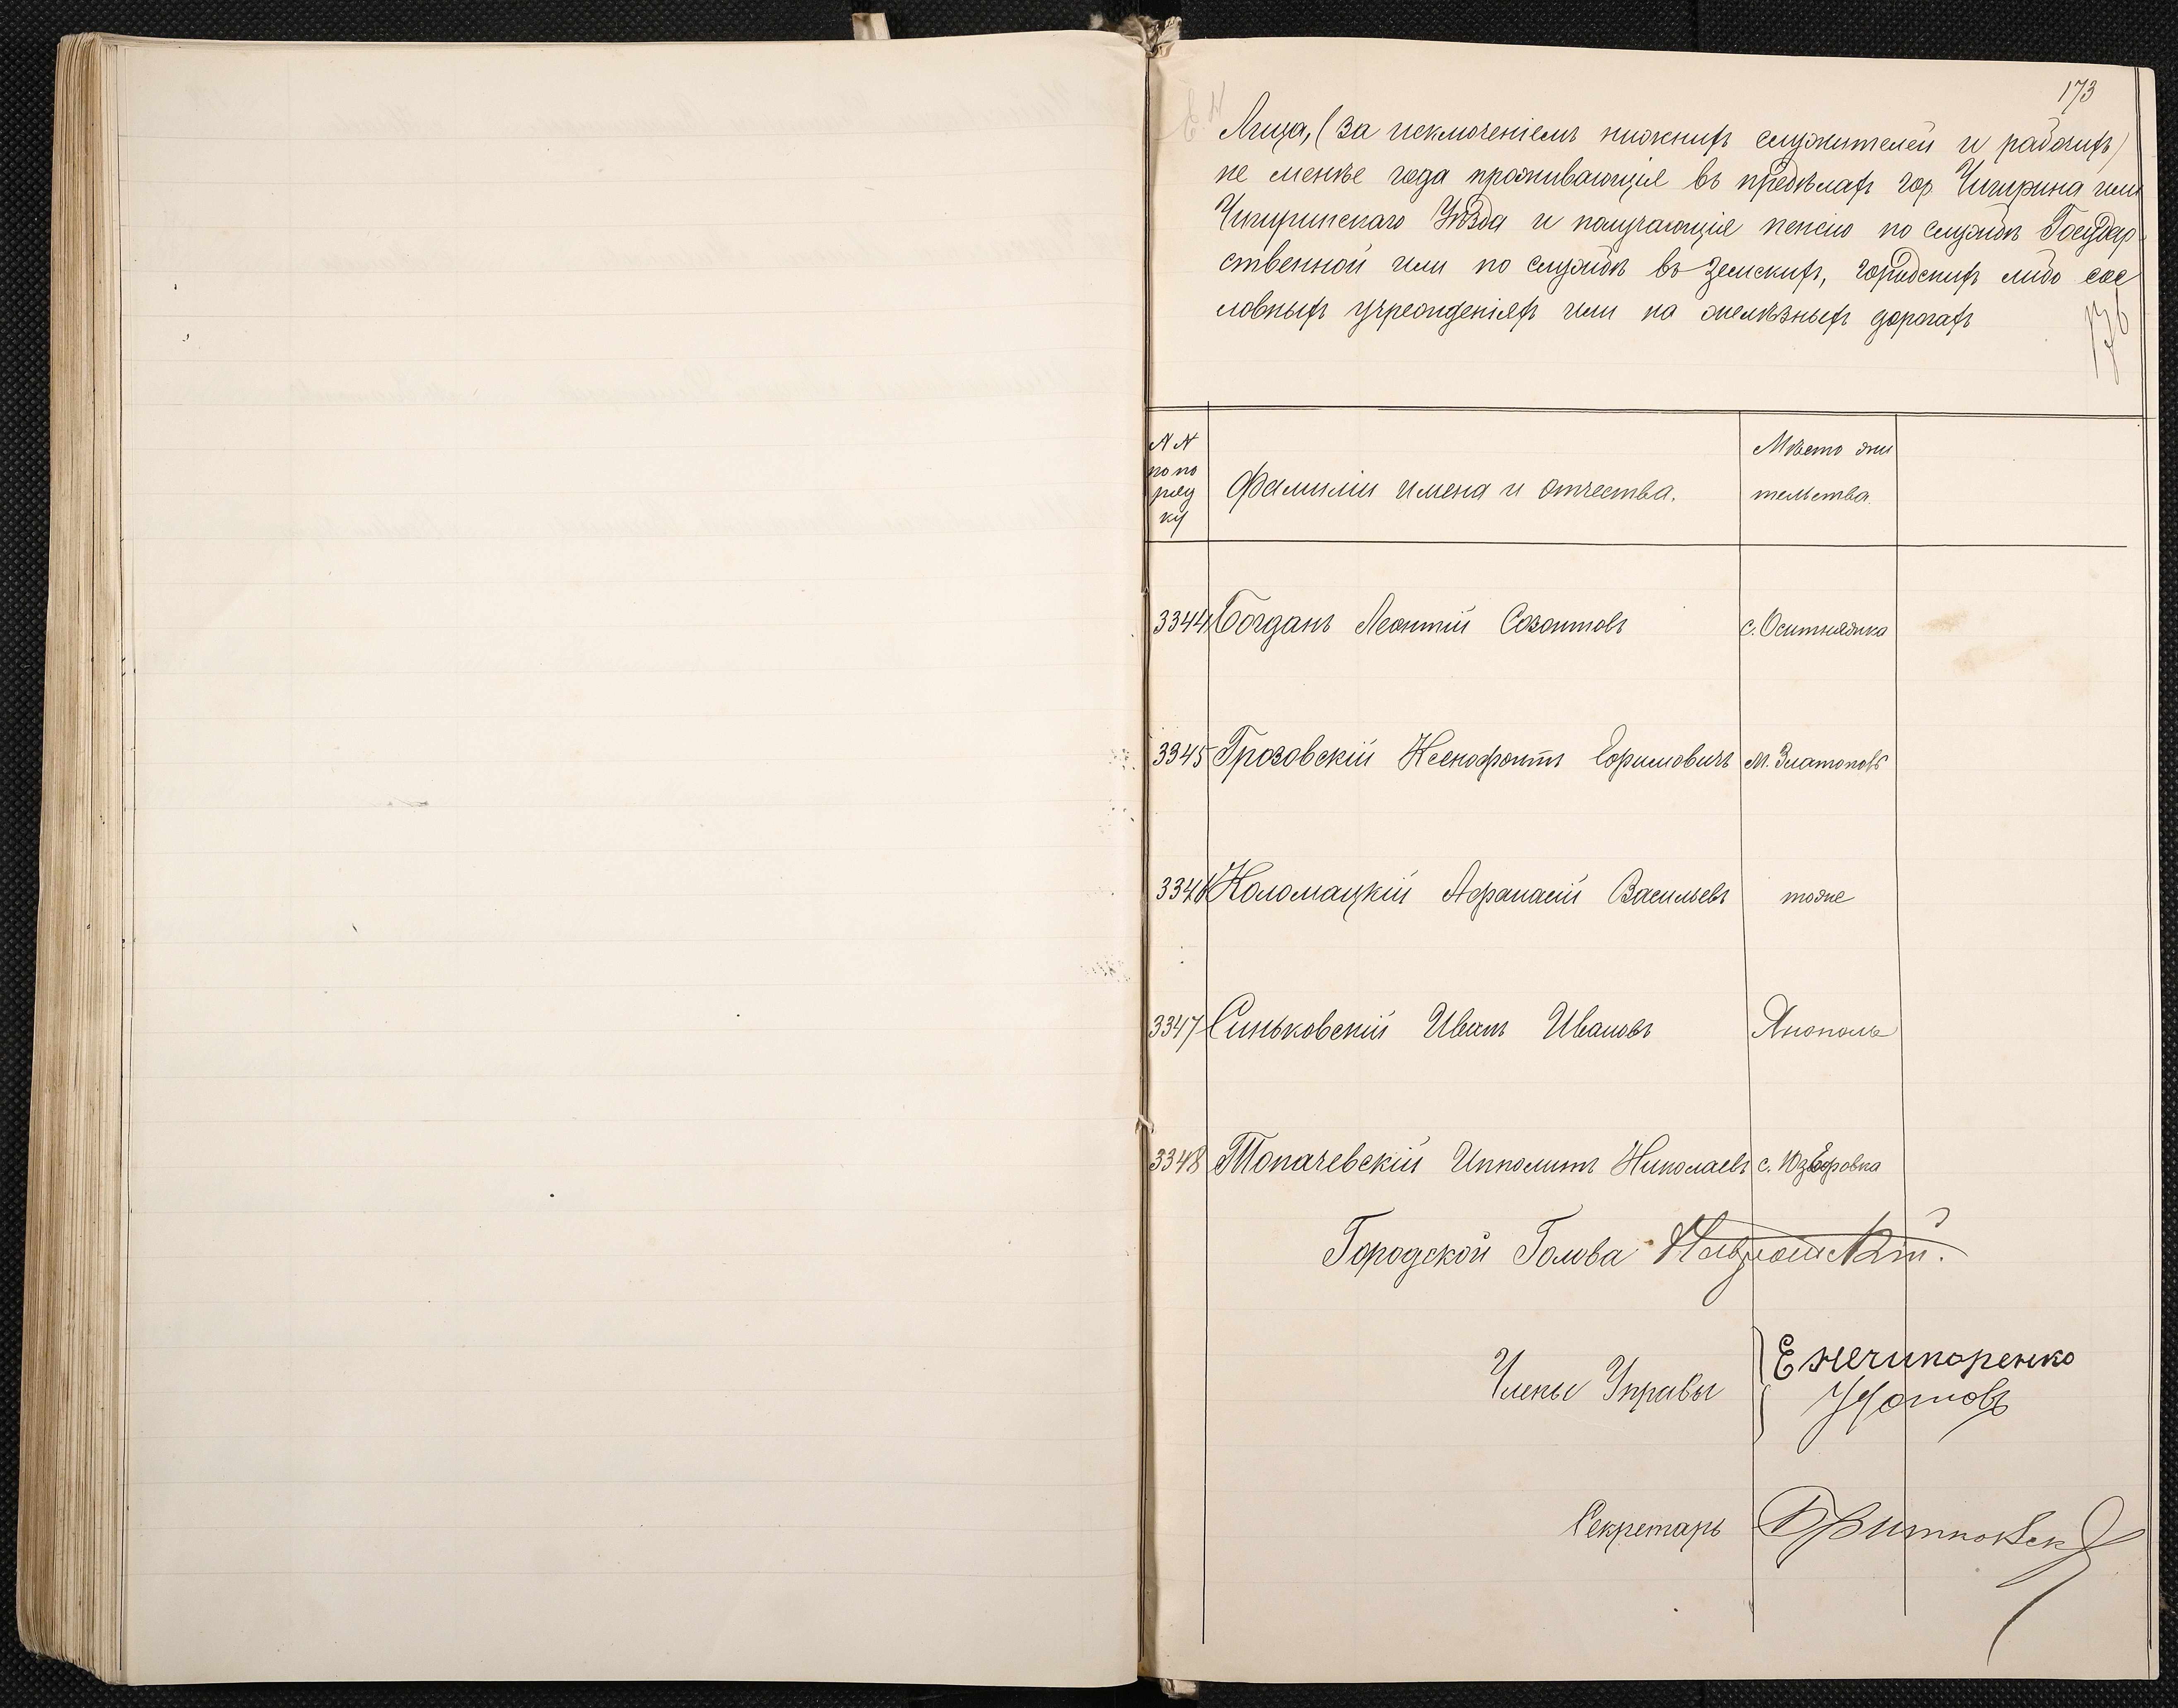 173
Лица, (за исключеніемъ нижнихъ служителей и рабочихъ)
не менѣе года проживающія въ предѣлахъ гор. Чигирина или
Чигиринскаго Уѣзда и получающія пенсію по службѣ Государ
ственной или по службѣ въ земскихъ, городскихъ либо сос
ловныхъ учрежденіяхъ или на желѣзныхъ дорогахъ
176
№№ по по ряд ку
Фамиліи имена и отчества.
Мѣсто жи тельства.
3344 Богданъ Леонтій Созонтовъ с. Оситняжка
3345 Грозовскій Ксенофонтъ Ефимовичъ м. Златополь
3346 Коломацкій Афанасій Васильевъ тоже
3347 Синьковскій Иванъ Ивановъ Янополь
3348 Топачевскій Ипполитъ Николаевъ с. Юзефовка
Городской Голова
Члены Управы Е Нечипоренко
Секретарь